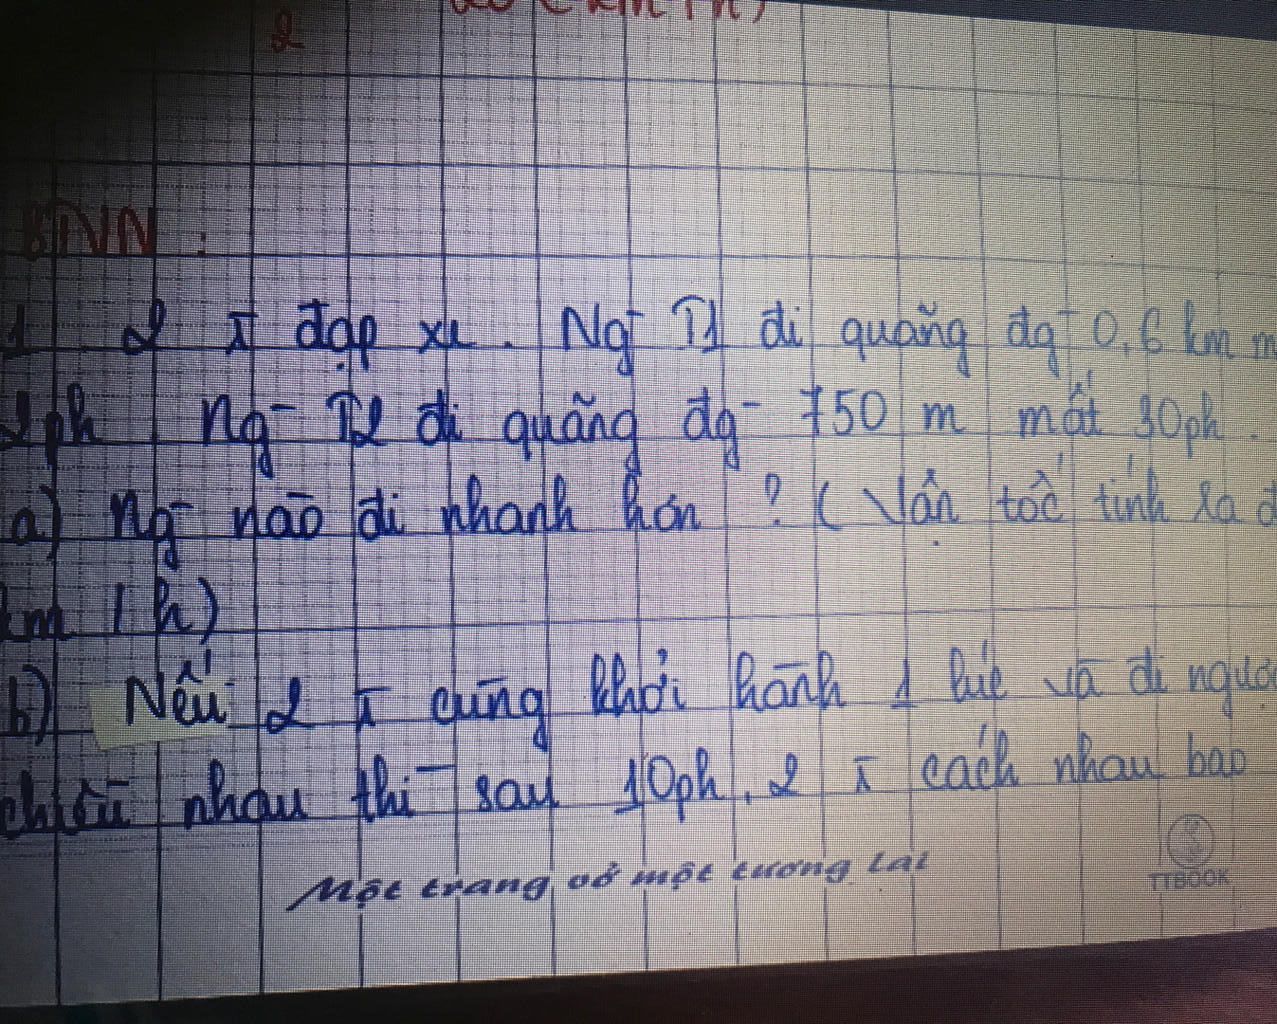 BTVN :
1 2 x đạp xe. Ng T1 đi quãng đg 0,6 km
2ph Ng T2 đi quãng đg 750 m mất 30ph.
a) Ng nào đi nhanh hơn ? ( Vận tốc tính ra
km / h)
b) Nếu 2 x cùng khởi hành 1 lúc và đi ngược
chiều nhau thì sau 10ph, 2 x cách nhau bao
Một trang vở một tương lai
TTBOOK